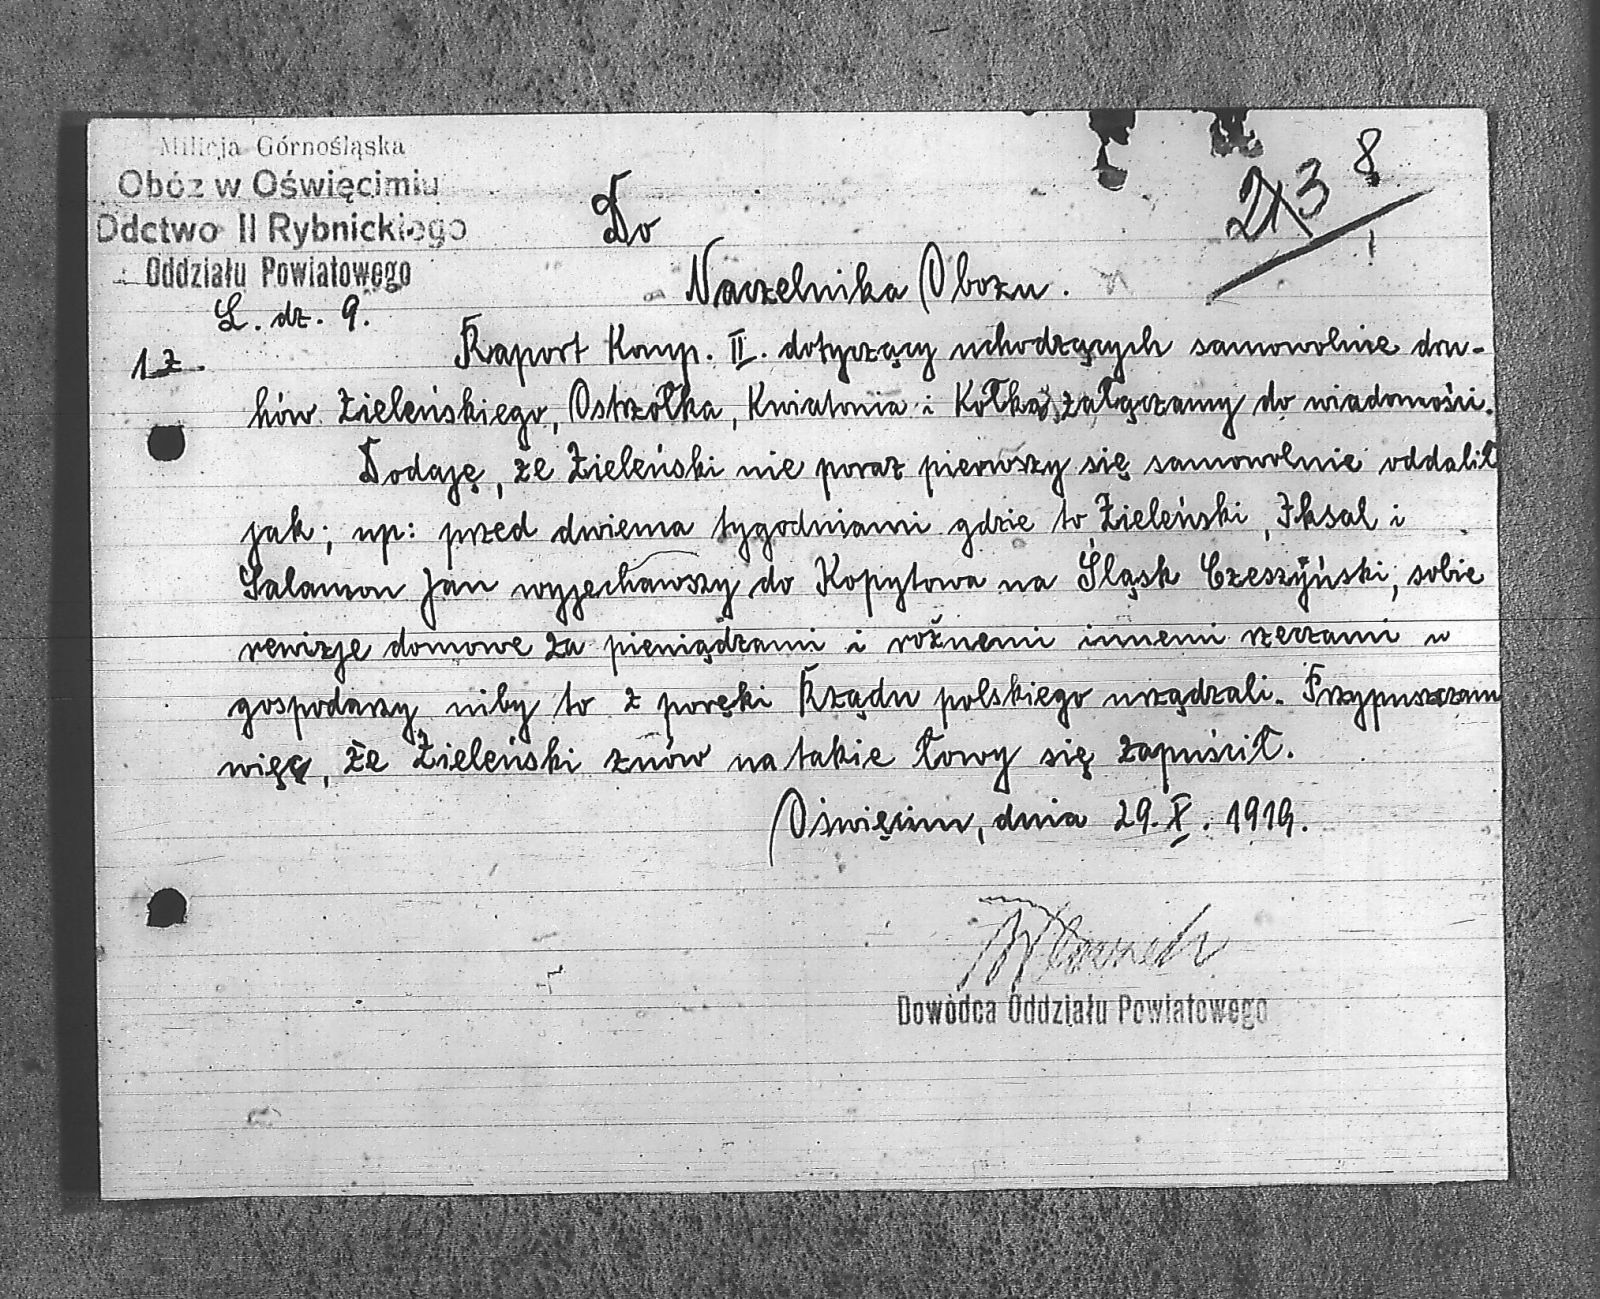 Milicja Górnośląska
Obóz w Oświęcimiu
Ddctwo II Rybnickiego
Oddziału Powiatowego
L. dz. 9.
213 8
1
Do
Naczelnika Obozu.
1 z.
Raport Komp. II. dotyczący uchodzących samowolnie dru-
hów Zieleńskiego, Ostrzołka, Kwiatonia i Kołka, załączamy do wiadomości.
Dodaję, że Zieleński nie poraz pierwszy się samowolnie oddalił
jak; np: przed dwiema tygodniami gdzie to Zieleński, Iksal i
Salamon Jan wyjechawszy do Kopytowa na Śląsk Czeszyński, sobie
rewizje domowe za pieniądzami i rożnemi innemi rzeczami w
gospodarzy niby to z poręki Rządu polskiego urządzali. Przypuszczam
więc, że Zieleński znów na takie łowy się zapuścił.
Oświęcim, dnia 29. X. 1919.
Dowódca Oddziału Powiatowego